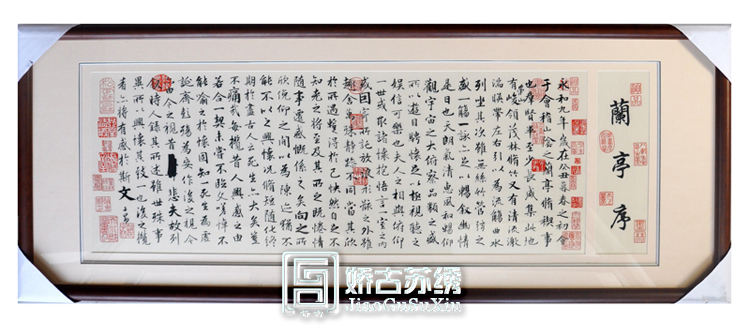 蘭亭序
永和九年歲在癸丑暮春之初會
于會稽山陰之蘭亭脩稧事
也群賢畢至少長咸集此地
有峻領茂林脩竹又有清流激
湍暎帶左右引以為流觴曲水
列坐其次雖無絲竹管弦之
盛一觴一詠亦足以暢敘幽情
是日也天朗氣清惠風和暢仰
觀宇宙之大俯察品類之盛
所以遊目騁懷足以極視聽之
娛信可樂也夫人之相與俯仰
一世或取諸懷抱悟言一室之內
或因寄所託放浪形骸之外雖
趣舍萬殊靜躁不同當其欣
於所遇蹔得於己快然自足不
知老之將至及其所之既惓情
隨事遷感慨係之矣向之所
欣俛仰之閒以為陳迹猶不
能不以之興懷況脩短隨化終
期於盡古人云死生亦大矣豈
不痛哉每攬昔人興感之由
若合一契未嘗不臨文嗟悼不
能喻之於懷固知一死生為虛
誕齊彭殤為妄作後之視今
亦由今之視昔悲夫故列
敘時人錄其所述雖世殊事
異所以興懷其致一也後之攬
者亦將有感於斯文
娇古苏绣
JiaoGuSuXiu